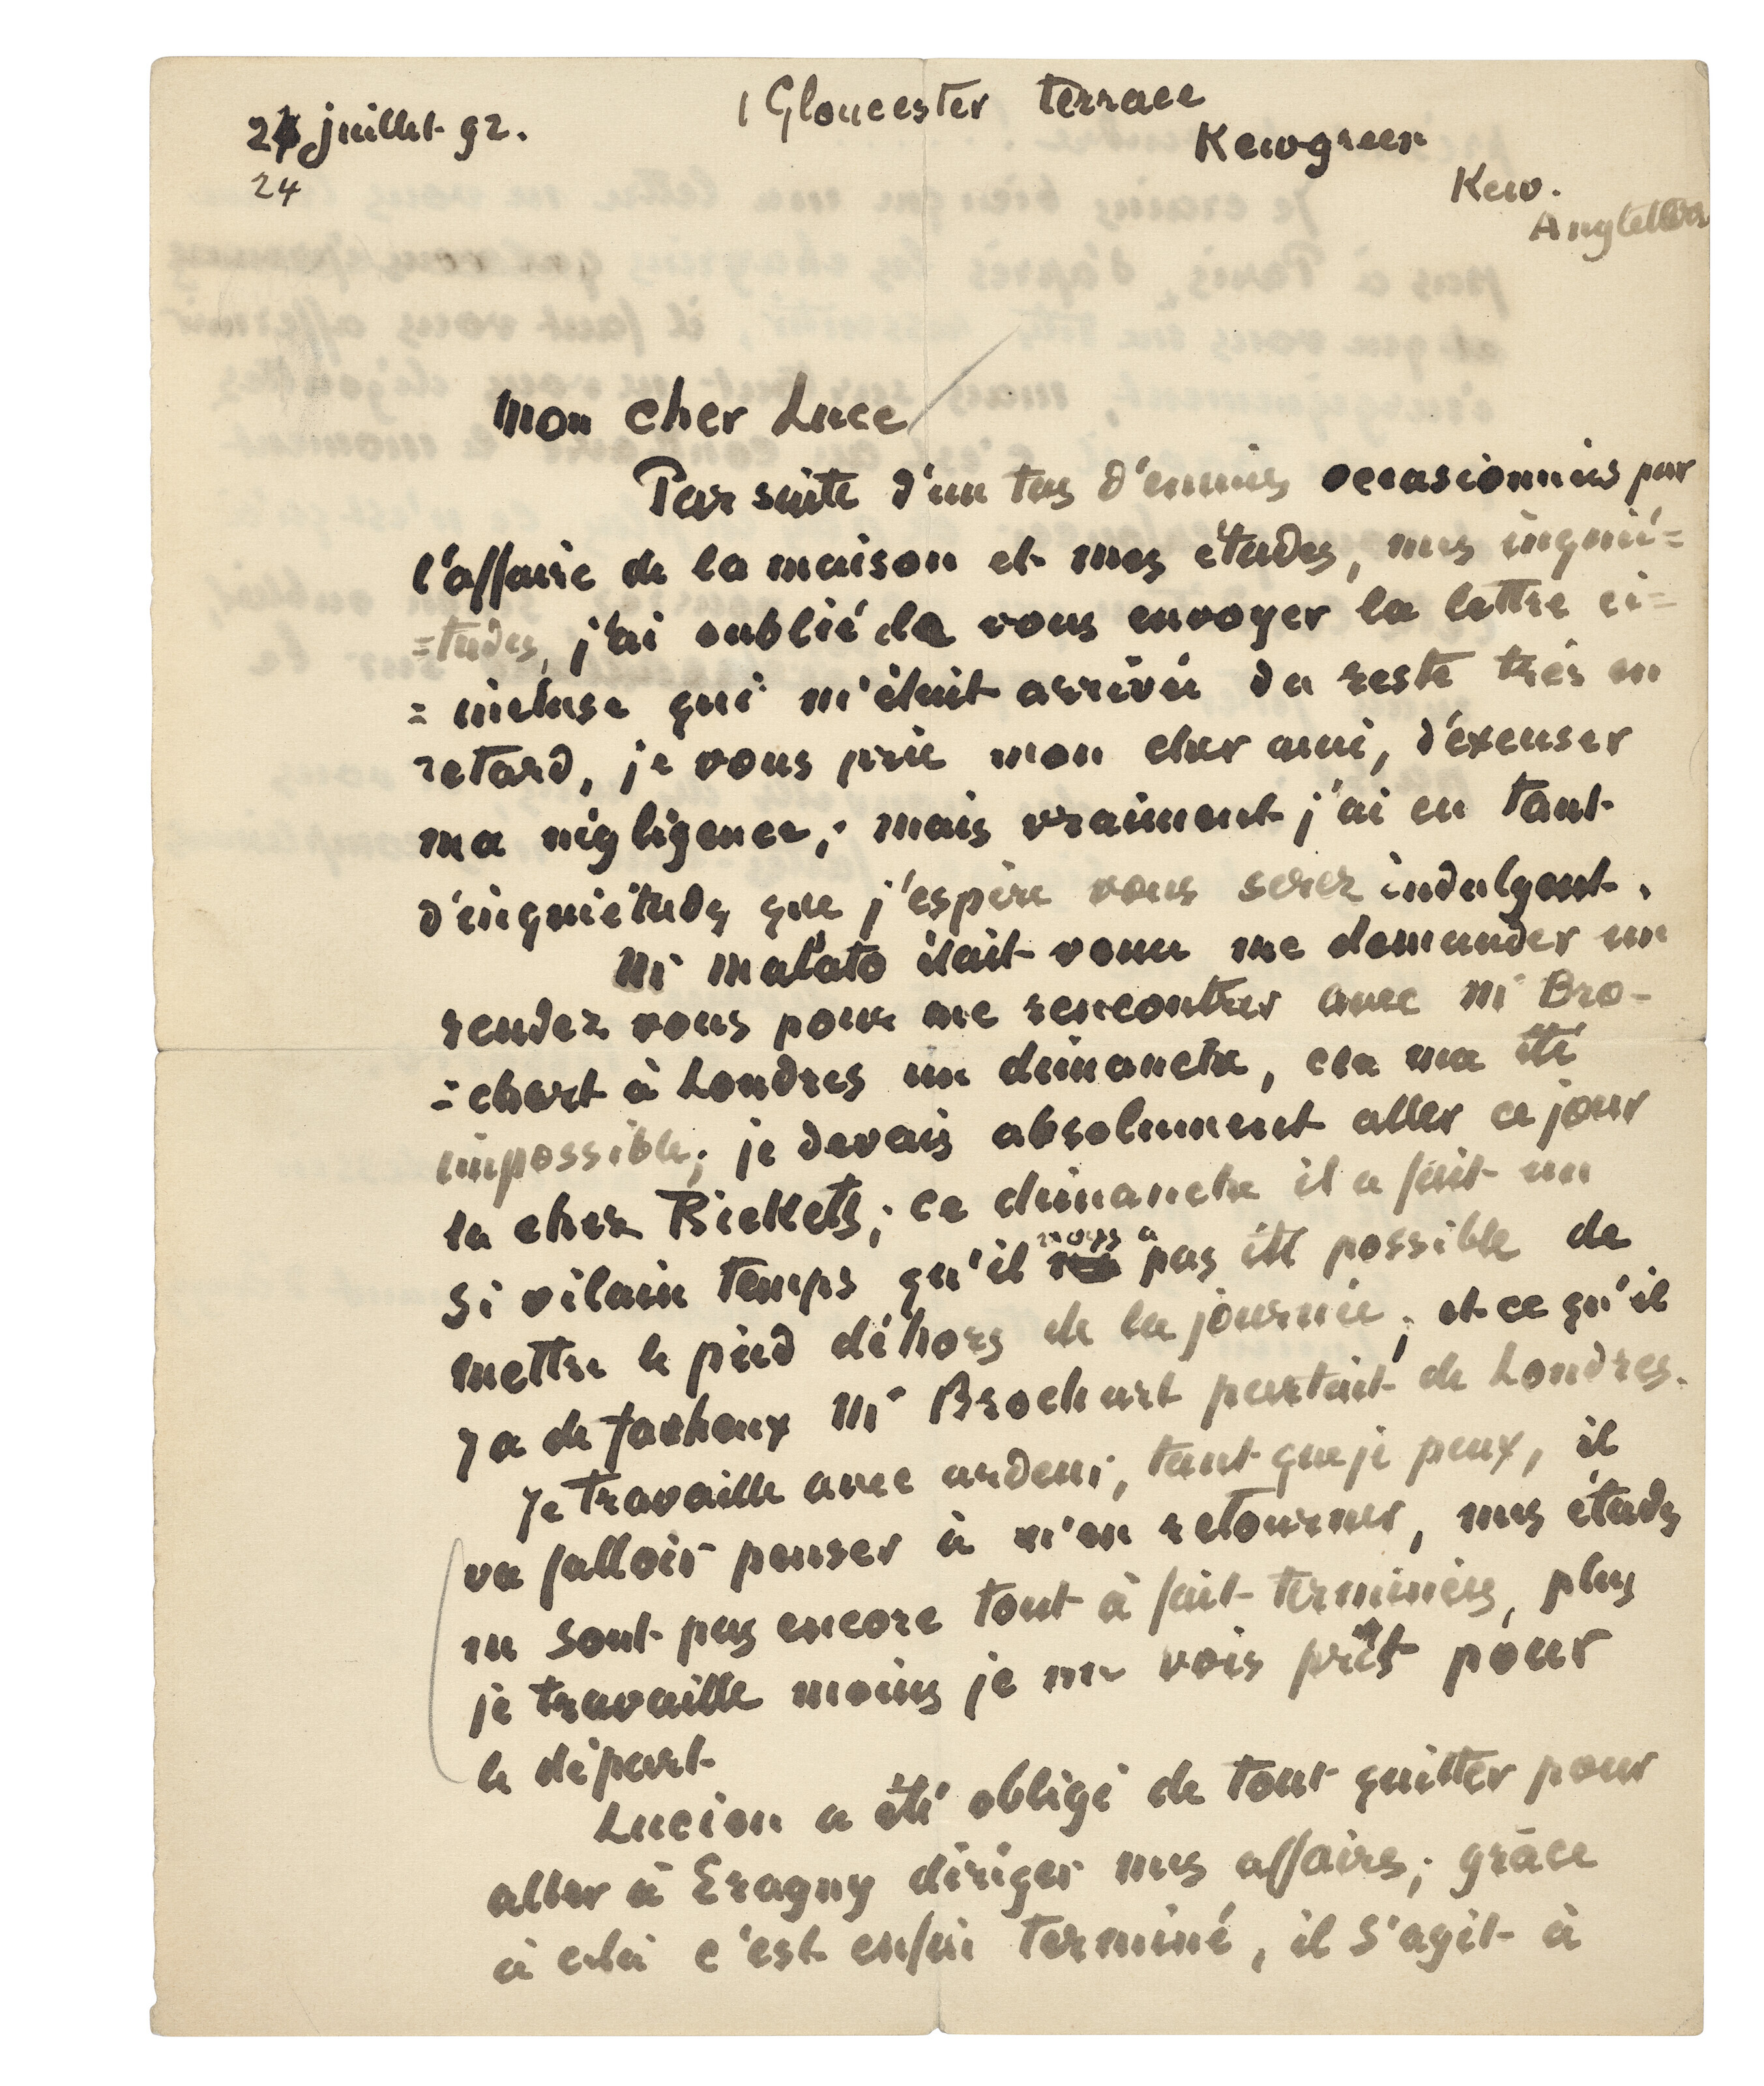 24 juillet 92.
24
1 Gloucester Terrace
Kewgreen
Kew.
Angleterre
Mon cher Luce
Par suite d'un tas d'ennuis occasionnés par
l'affaire de la maison et mes études, mes inquié=
=tudes, j'ai oublié de vous envoyer la lettre ci=
=incluse qui m'était arrivée du reste très en
retard, je vous prie mon cher ami, d'éxcuser
ma négligence; mais vraiment j'ai eu tant
d'inquiétudes que j'espère vous serez indulgent.
Mr Malato était venu me demander un
rendez vous pour me rencontrer avec Mr Bro-
=chart à Londres un dimanche, cea ma été
impossible; je devais absolument aller ce jour
la chez Rickets; ce dimanche il a fait un
si vilain temps qu'il nous a pas été possible de
mettre le pied déhors de la journée; et ce qu'il
y a de facheux Mr Brochart partait de Londres.
Je travaille avec ardeur, tant que je peux, il
va falloir penser à m'en retourner, mes études
ne sont pas encore tout à fait terminées, plus
je travaille moins je me vois prêt pour
le départ
Lucien a été obligé de tout quitter pour
aller à Eragny diriger mes affaires; grâce
à celà c'est enfin terminé, il s'agit à